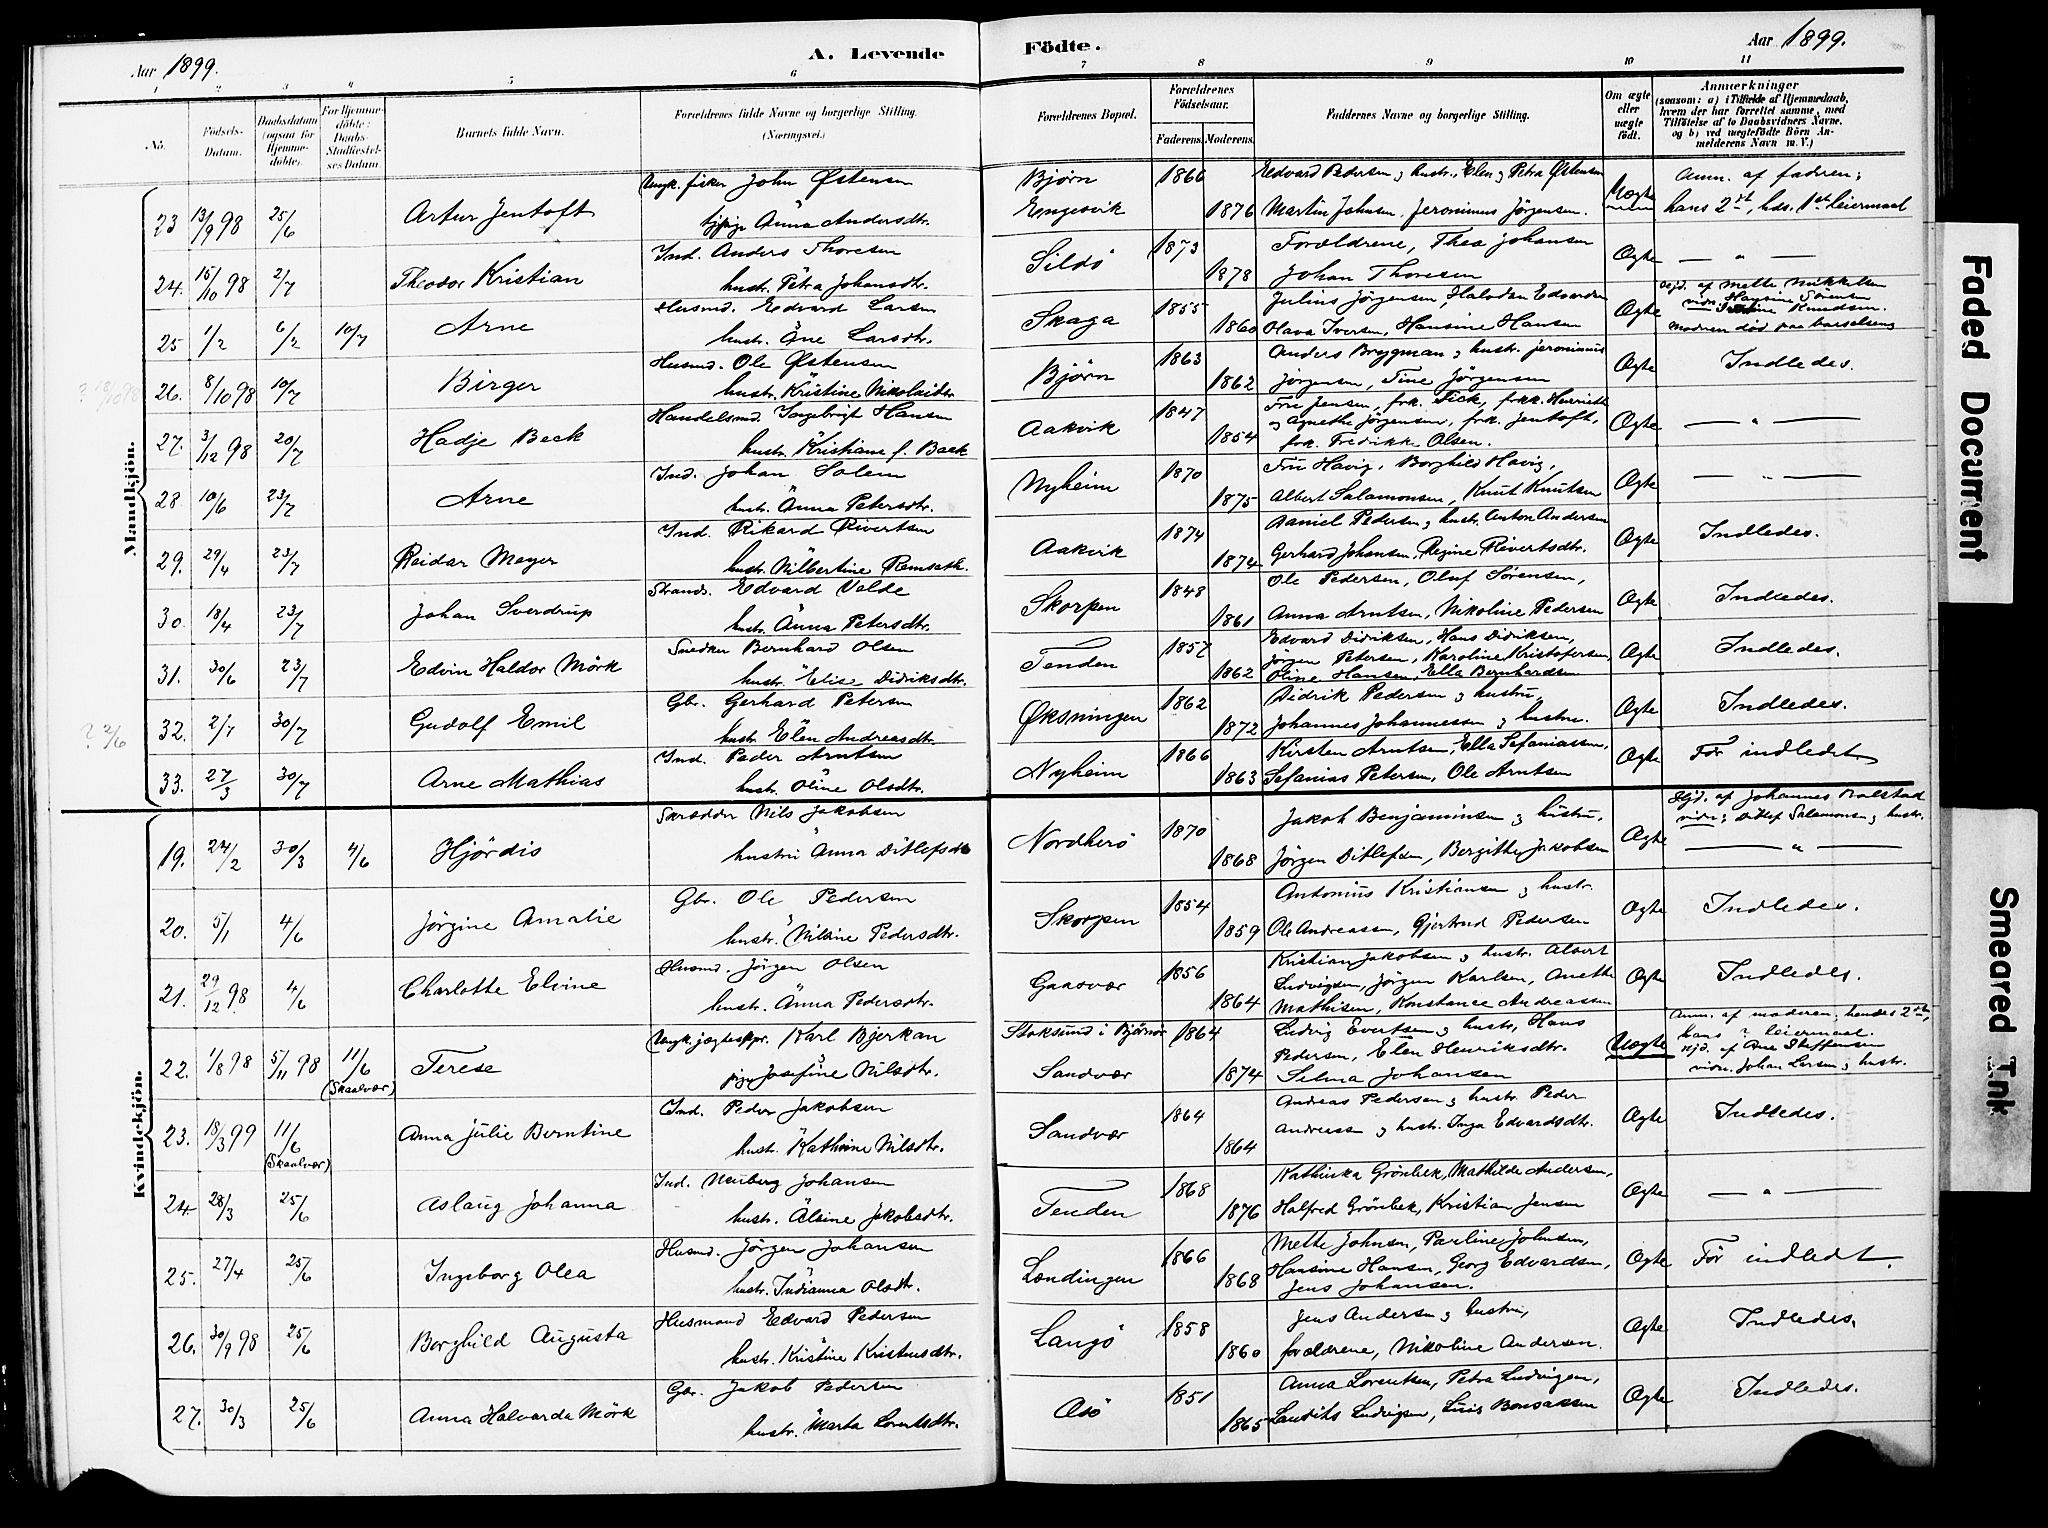 Aar 1899.
A. Levende Födte.
Aar 1899.
1 2 3 4 5 6 7 8 9 10 11
No.
Födsels-Datum.
Daabsdatum (ogsaa for Hjemmedöbte).
For Hjemmedöbte: Daabs Stadfæstelses Datum
Barnets fulde Navn.
Forældrenes fulde Navne og borgerlige Stilling.
(Næringsvei.)
Forældrenes Bopæl.
Forældrenes Födselsaar.
Faderens. Moderens.
Faddernes Navne og borgerlige Stilling.
Om ægte eller uægte födt.
Anmærkninger
(saasom: a) i Tilfælde af Hjemmedaab,
hvem der har forrettet samme, med
Tilföielse af to Daabsvidners Navne,
og b) ved uægtefödte Börn Anmelderens Navn m. V.)
Mandkjön.
Ungk. fisker John Østensen Bjørn 1866 Edvard Pedersen og hustr., Elen og Petra Østensen Anm. af faderen;
23 13/9 98 25/6 Artur Jentoft pige Anna Andersdtr. Engesvik 1876 Martin Johnsen. Jeronimus Jörgensen. Uægte hans 2det, hds. 1ste leiermaal
Ind. Anders Thoresen 1873 Forældrene, Thea Johansen
24. 15/10 98 2/7 Theodor Kristian hustr. Petra Johansdtr. Sildö 1878 Johan Thoresen Ægte — " —
Husmd. Edvard Larsen 1855 Julius Jörgensen, Halvdan Edvardsen Hjd. af Mette Mikkelsen
vidn. Hansine Sörensen
25 1/2 6/2 10/7 Arne hustr. Ane Larsdtr. Skaga 1860 Olava Iversen, Hansine Hansen Ægte Knudsen.
Moderen död paa barselseng
Husmd. Ole Østensen 1863 Anders Brygman og hustr. Jeronimus
? 18/10 98 26. 8/10 98 10/7 Birger hustr. Kristine Nikolaidtr. Bjørn 1862 Jörgensen, Tine Jörgensen Ægte Indledes.
Handelsmd. Ingebrigt Hansen 1847 Fru Jensen, frk. Fick, frkk. Henriette
27. 3/12 98 20/7 Hadje Beck hustr. Kristiane f. Beck Aakvik 1854 og Agnethe Jörgensen, frk. Jentoft, Ægte — " —
frk. Fredrikke Olsen.
Ind. Johan Solem 1870 Fru Havig, Borghild Havig,
28 10/6 23/7 Arne hustr. Anna Petersdtr. Nyheim 1875 Albert Salamonsen, Knut Knutsen Ægte — " —
Ind. Rikard Rivertsen 1874 Daniel Pedersen og hustr. Anton Andersen
29. 29/4 23/7 Reidar Meyer hustr. Nilbertine Remseth. Aakvik 1874 Gerhard Johansen, Regine Rivertsdtr. Ægte Indledes.
Strands. Edvard Velde 1848 Ole Pedersen, Oluf Sörensen,
30. 18/4 23/7 Johan Sverdrup hustr. Anna Petersdtr. Skorpen 1861 Anna Arntsen, Nikoline Pedersen Ægte Indledes.
Snedker Bernhard Olsen 1857 Edvard Didriksen, Hans Didriksen,
31. 30/6 23/7 Edvin Haldor Mörk hustr. Elise Didriksdtr. Tenden 1862 Jörgen Petersen, Karoline Kristofersen, Ægte Indledes.
Oline Hansen, Ella Bernhardsen
Gbr. Gerhard Petersen 1862 Didrik Pedersen og hustru,
? 2/6 32. 2/7 30/7 Gudolf Emil hustr. Elen Andreasdtr. Øksningen 1872 Johannes Johannessen og hustru. Ægte Indledes.
Ind. Peder Arntsen 1866 Kirsten Arntsen, Ella Sefaniassen,
33. 27/3 30/7 Arne Mathias hustr. Oline Olsdtr. Nyheim 1863 Sefanias Petersen, Ole Arntsen Ægte Før indledet
Kvindekjön.
Skrædder Nils Jakobsen 1870 Jakob Benjaminsen og hustru, Hjd. af Johannes Bolstad
vidn: Ditlef Salamonsen og hustr.
19. 24/2 30/3 4/6 Hjördis hustru Anna Ditlefsdtr Nordherö 1868 Jörgen Ditlefsen, Bergitte Jakobsen Ægte — " —
Gbr. Ole Pedersen 1854 Antonius Kristiansen og hustr.
20. 5/1 4/6 Jörgine Amalie hustr. Nilsine Pedersdtr. Skorpen 1859 Ole Andreassen, Gjertrud Pedersen Ægte Indledes.
Husmd. Jörgen Olsen 1856 Kristian Jakobsen og hustr. Albert
21. 29/12 98. 4/6 Charlotte Elvine hustr. Anna Pedersdtr. Gaasvær 1864 Ludvigsen, Jörgen Karlsen, Anette Ægte Indledes.
Mathisen, Konstance Andreassen
Ungk. jægteskpr. Karl Bjerkan Stoksund i Björnör 1864 Ludvig Evertsen og hustr, Hans Anm. af moderen; hendes 2det,
hans ? leiermaal.
22. 1/8 98 5/11 98 11/6 (Skaalvær) Terese pige Josefine Nilsdtr. Sandvær 1874 Pedersen, Elen Henriksdtr. Uægte Hjd. af Ane Steffensen
Selma Johansen vidn. Johan Larsen og hustr.
Ind. Peder Jakobsen 1864 Andreas Pedersen og hustr. Peder
23. 18/3 99 11/6 (Skaalvær) Anna Julie Berntine hustr. Kathrine Nilsdtr. Sandvær 1864 Andreassen og hustr. Inga Edvardsdtr. Ægte Indledes.
Ind. Neuberg Johansen 1868 Kathinka Grönbek, Mathilde Andersen,
24 28/3 25/6 Aslaug Johanna hustr. Alsine Jakobsdtr. Tenden 1876 Halfred Grönbek, Kristian Jensen Ægte — " —
Husmd. Jörgen Johansen 1866 Mette Johnsen, Pauline Johnsen,
25. 27/4 25/6 Ingeborg Olea hustr. Indianna Olsdtr. Lændingen 1868 Hansine Hansen, Georg Edvardsen, Ægte Før indledt.
Jens Johansen.
Husmand Edvard Pedersen 1858 Jens Andersen og hustru,
26. 30/9 98 25/6 Borghild Augusta hustr. Kristine Kristensdtr. Langö 1860 forældrene, Nikoline Andersen. Ægte Indledes.
Gbr. Jakob Pedersen 1851 Anna Lorentsen, Petra Ludvigsen,
27. 30/3 25/6 Anna Halvarda Mörk hustr. Marta Lorentsdtr. Asö 1865 Laurits Ludvigsen, Bonsaksen Ægte Indledes.
Faded Document
Smeared Ink